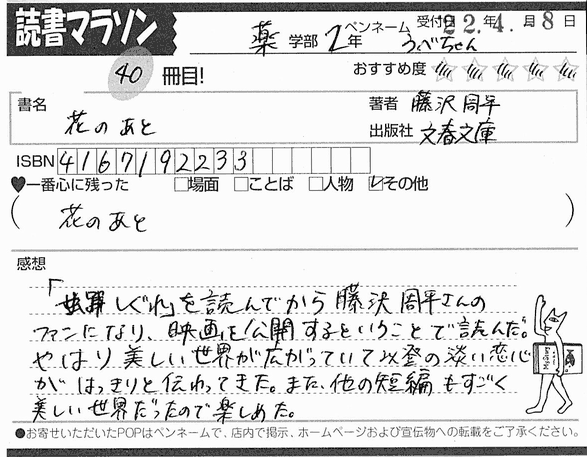 読書マラソン
薬 学部 2年 ペンネーム うべちゃん 受付日 22年 4.月 8日
40 冊目! おすすめ度
書名 花のあと
著者 藤沢周平
出版社 文春文庫
ISBN 4167192233
♥一番心に残った □場面 □ことば □人物 ☑その他
( 花のあと )
感想
「蝉しぐれ」を読んでから藤沢周平さんの
ファンになり、映画を公開するということで読んだ。
やはり美しい世界が広がっていて以登の淡い恋心
がはっきりと伝わってきた。また、他の短編もすごく
美しい世界だったので楽しめた。
●お寄せいただいたPOPはペンネームで、店内で掲示、ホームページおよび宣伝物への転載をご了承ください。